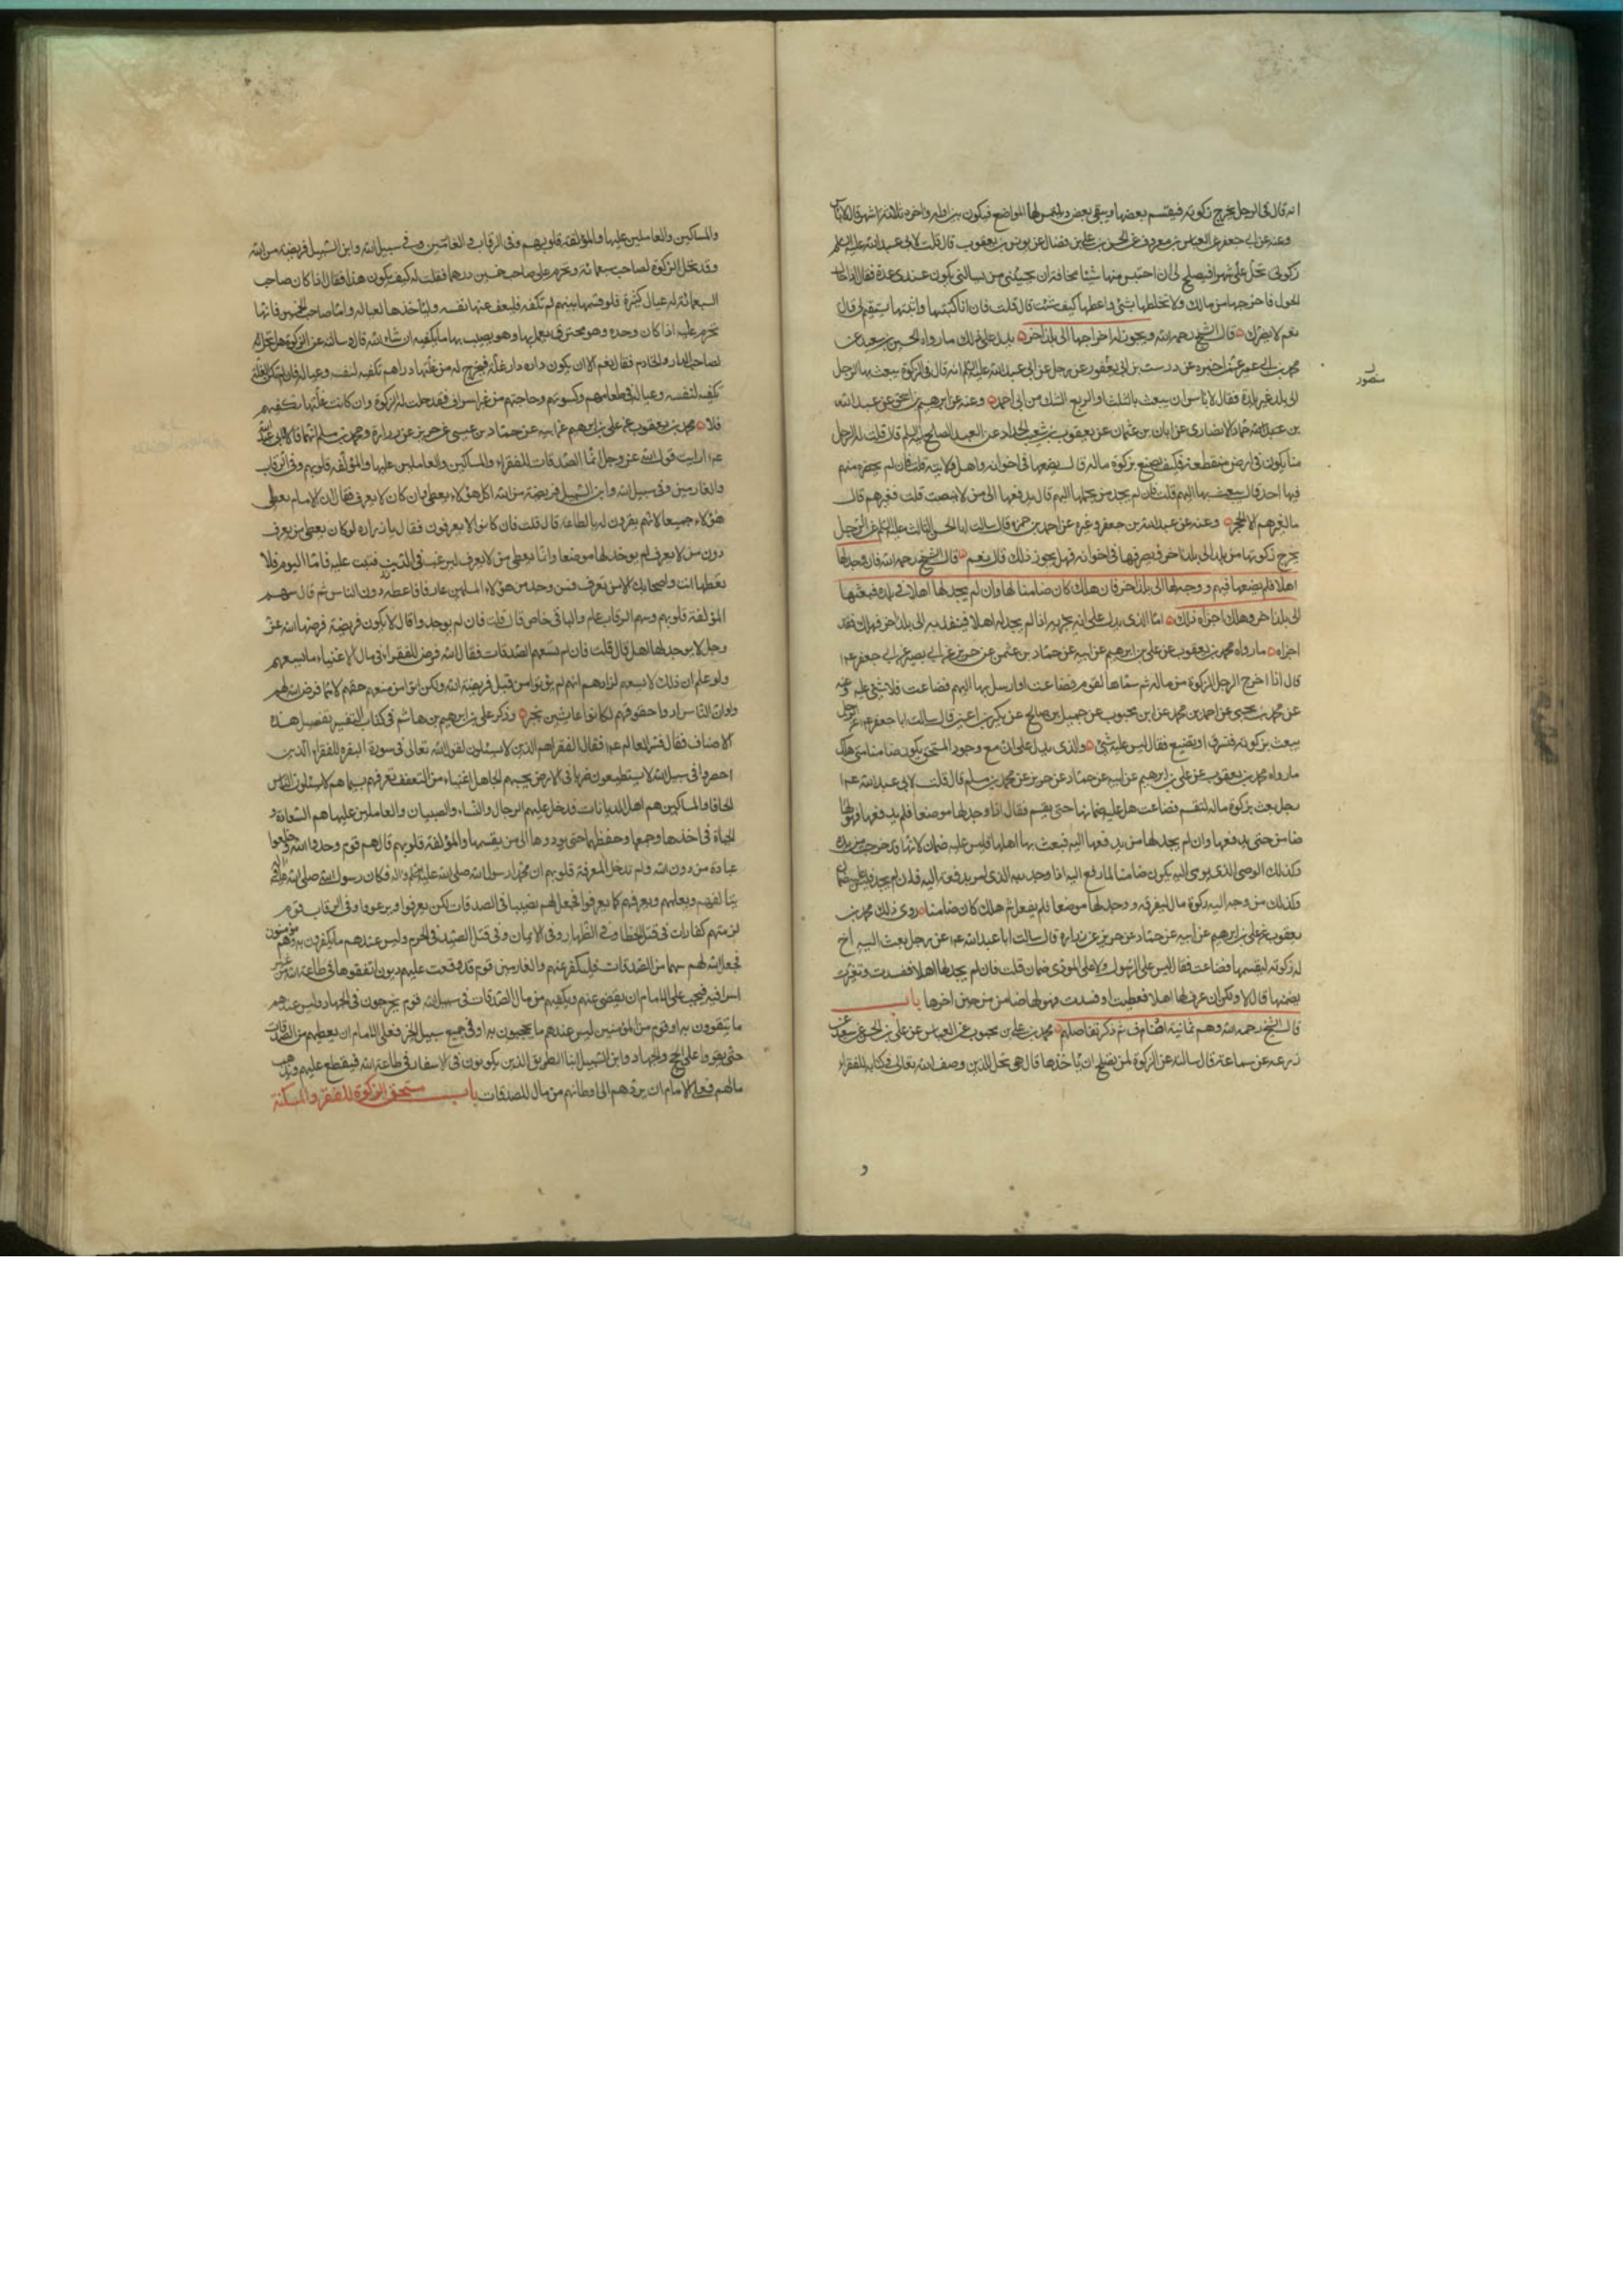 انه قال في الرجل يخرج زكوته فيقسم بعضها ويبقى بعض يلتمس لها المواضع فيكون بين اوله واخره ثلاثة اشهر قال لا باس
وعنه عن ابي جعفر عن العباس بن معروف عن الحسن بن علي بن فضال عن يونس بن يعقوب قال قلت لابي عبد الله عليه السلم
زكوتي تحل علي شهرا فيصلح لي ان احتبس منها شيئا مخافة ان يجيئني من يسالني يكون عندي عدة فقال اذا حال
الحول فاخرجها من مالك ولا تخلطها بشئ واعطها كيف شئت قال قلت فان انا كتبتها واثبتها ايستقيم لي قال
نعم لا يضرك قال الشيخ رحمه الله ويجوز له اخراجها الى بلد اخر يدل على ذلك ما رواه الحسين بن سعيد عن
محمد بن ابي عمير عمن اخبره عن درست بن ابي يعفور عن رجل عن ابي عبد الله عليه السلم انه قال في الزكوة يبعث بها الرجل
منصور
الى بلد غير بلده فقال لا باس ان يبعث بالثلث او الربع الشك من ابي احمد وعنه عن ابرهيم بن اسحق عن عبد الله
بن حماد الانصاري عن ابان بن عثمان عن يعقوب بن شعيب الحداد عن العبد الصالح عليه السلم قال قلت له الرجل
منا يكون في ارض منقطعة كيف يصنع بزكوة ماله قال يضعها في اخوانه واهل ولايته قلت فان لم يحضره منهم
فيها احد قال يبعث بها اليهم قلت فان لم يجد من يحملها اليهم قال يدفعها الى من لا ينصب قلت فغيرهم قال
ما لغيرهم الا الحجر وعنه عن عبد الله بن جعفر وغيره عن احمد بن حمزة قال سالت ابا الحسن الثالث عليه السلم عن الرجل
يخرج زكوتها من بلد الى بلد اخر فيصرفها في اخوانه فهل يجوز ذلك قال نعم قال الشيخ رحمه الله فان وجد لها
اهلا فلم يضعها فيهم ووجه لها الى بلد اخر فان هلك كان ضامنا لها وان لم يجد لها اهلا في بلده فبعثها
الى بلد اخر وهلك اجزاه ذلك اما الذي يدل على انه يجزيه اذا لم يجد له اهلا فينفذ به الى بلد اخر فهلك فقد
اجزاه ما رواه محمد بن يعقوب عن علي بن ابرهيم عن ابيه عن حماد بن عثمن عن حريز عن ابي بصير عن ابي جعفر ع
قال اذا اخرج الرجل الزكوة من ماله ثم سماها لقوم فضاعت او ارسل بها اليهم فضاعت فلا شئ عليه وعنه
عن محمد بن يحيى عن احمد بن محمد عن ابن محبوب عن جميل بن صالح عن بكير بن اعين قال سالت ابا جعفر ع عن الرجل
يبعث بزكوته فتسرق او تضيع فقال ليس عليه شئ والذي يدل على ان مع وجود المستحق يكون ضامنا متى هلك
ما رواه محمد بن يعقوب عن علي بن ابرهيم عن ابيه عن حماد عن حريز عن محمد بن مسلم قال قلت لابي عبد الله ع
رجل بعث بزكوة ماله لتقسم فضاعت هل عليه ضمانها حتى يقسم فقال اذا وجد لها موضعا فلم يدفعها فهو لها
ضامن حتى يدفعها وان لم يجد لها من يدفعها اليه فبعث بها الى اهلها فليس عليه ضمان لانها قد خرجت من يده
وكذلك الوصي الذي يوصى اليه يكون ضامنا لما رفع اليه اذا وجد ربه الذي امر بدفعه اليه فان لم يجد فليس عليه ضمان
وكذلك من وجه اليه زكوة مال ليفرقه ووجد لها موضعا فلم يفعل ثم هلك كان ضامنا روى ذلك محمد بن
يعقوب عن علي بن ابرهيم عن ابيه عن حماد عن حريز عن زرارة قال سالت ابا عبد الله ع عن رجل بعث اليه اخ
له زكوته ليقسمها فضاعت فقال ليس على الرسول ولا على المودى ضمان قلت فان لم يجد لها اهلا ففسدت وتغيرت
يضمنها قال لا ولكن ان عرف لها اهلا فعطبت او فسدت فهو لها ضامن من حين اخرها باب
قال الشيخ رحمه الله وهم ثمانية اصناف ثم ذكر تفاصيلهم محمد بن علي بن محبوب عن العباس عن علي بن الحسن عن سعيد عن
زرعه عن سماعة قال سالته عن الزكوة لمن يصلح ان ياخذها قال هي تحل للذين وصف الله تعالى في كتابه للفقراء
و
والمساكين والعاملين عليها والمؤلفة قلوبهم وفي الرقاب والغارمين وفي سبيل الله وابن السبيل فريضة من الله
وقد تحل الزكوة لصاحب سبعمائة وتحرم على صاحب خمسين درهما فقلت له كيف يكون هذا فقال اذا كان صاحب
السبعمائة له عيال كثيرة فلو قسمها بينهم لم تكفه فليعف عنها نفسه ولياخذها لعياله واما صاحب الخمسين فانها
تحرم عليه اذا كان وحده وهو محترف يعمل بها وهو يصيب بها ما يكفيه ان شاء الله قال وسالته عن الزكوة هل تحل
لصاحب الدار والخادم فقال نعم الا ان يكون داره دار غلة فيخرج له من غلتها دراهم تكفيه لنفسه وعياله فان لم تكن الغلة
تكفيه لنفسه وعياله في طعامهم وكسوتهم وحاجتهم من غير اسراف فقد حلت له الزكوة وان كانت غلتها تكفيهم
فلا محمد بن يعقوب عن علي بن ابرهيم عن ابيه عن حماد بن عيسى عن حريز عن زرارة ومحمد بن مسلم انهما قالا لابي عبد الله
ع ارايت قول الله عز وجل انما الصدقات للفقراء والمساكين والعاملين عليها والمؤلفة قلوبهم وفي الرقاب
والغارمين وفي سبيل الله وابن السبيل فريضة من الله اكل هؤلاء يعطى وان كان لا يعرف فقال ان الامام يعطي
هؤلاء جميعا لانهم يقرون له بالطاعة قال قلت فان كانوا لا يعرفون فقال يا زراره لو كان يعطى من يعرف
دون من لا يعرف لم يوجد لها موضعا وانما يعطى من لا يعرف ليرغب في الدين فتثبت عليه فاما اليوم فلا
تعطها انت واصحابك الا من تعرف فمن وجد من هؤلاء المسلمين عارفا فاعطه دون الناس ثم قال سهم
المؤلفة قلوبهم وسهم الرقاب عام والباقي خاص قال قلت فان لم يوجدوا قال لا يكون فريضة فرضها الله عز
وجل لا يوجد لها اهل قال قلت فان لم تسعهم الصدقات فقال الله فرض للفقراء في مال الاغنياء ما يسعهم
ولو علم ان ذلك لا يسعهم لزادهم انهم لم يؤتوا من قبل فريضة الله ولكن اتوا من منعهم حقهم لا مما فرض الله لهم
ولو ان الناس ادوا حقوقهم لكانوا عائشين بخير وذكر علي بن ابرهيم بن هاشم في كتاب التفسير تفصيل هذه
الاصناف فقال فسر العالم ع فقال الفقراء هم الذين لا يسئلون لقول الله تعالى في سورة البقره للفقراء الذين
احصروا في سبيل الله لا يستطيعون ضربا في الارض يحسبهم الجاهل اغنياء من التعفف تعرفهم بسيماهم لا يسئلون الناس
الحافا والمساكين هم اهل الديانات قد دخل عليهم الرجال والنساء والصبيان والعاملين عليها هم السعاة و
الجباة في اخذها وجمعها وحفظها حتى يودوها الى من يقسمها والمؤلفة قلوبهم قال هم قوم وحدوا الله وخلعوا
عبادة من دون الله ولم تدخل المعرفة قلوبهم ان محمدا رسول الله صلى الله عليه واله فكان رسول الله صلى الله عليه واله
يتالفهم ويعلمهم ويعرفهم كما يعرفوا فجعل لهم نصيبا في الصدقات لكي يعرفوا ويرغبوا وفي الرقاب قوم
لزمتهم كفارات في قتل الخطا وفي الظهار وفي الايمان وفي قتل الصيد في الحرم وليس عندهم ما يكفرون به وهم مؤمنون
فجعل الله لهم سهما من الصدقات ليكفر عنهم والغارمين قوم قد وقعت عليهم ديون انفقوها في طاعة الله من غير
اسراف فيجب على الامام ان يقضي عنهم ويكفيهم من مال الصدقات وفي سبيل الله قوم يخرجون في الجهاد وليس عندهم
ما يتقوون به او قوم من المؤمنين ليس عندهم ما يحجون به او في جميع سبيل الخير فعلى الامام ان يعطيهم من مال الصدقات
حتى يقووا على الحج والجهاد وابن السبيل ابناء الطريق الذين يكونون في الاسفار في طاعة الله فيقطع عليهم ويذهب
مالهم فعلى الامام ان يردهم الى اوطانهم من مال الصدقات باب مستحق الزكوة للفقر والمسكنة